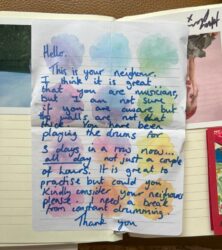 Hello,
This is your neighbour.
I think it is great
that you are musicians,
but I am not sure
if you are aware but
the walls are not that
thick. You have been
playing the drums for
3 days in a row now...
all day not just a couple
of hours. It is great to
practise but could you
kindly consider your neighbours
please. I need a break
from constant drumming.
Thank you